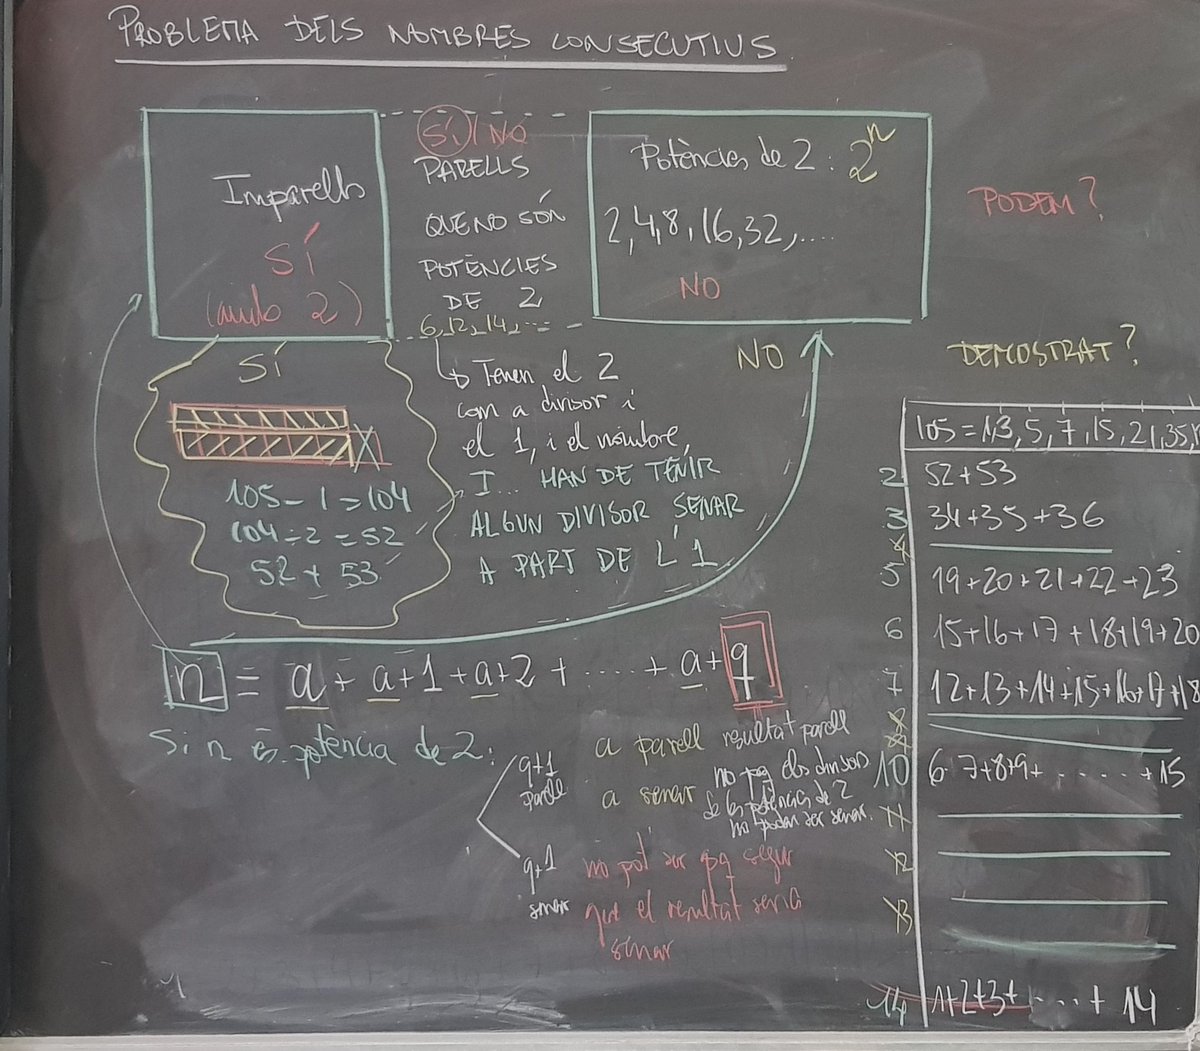 PROBLEMA DELS NOMBRES CONSECUTIUS
Imparells
SÍ
(amb 2)
SÍ / NO
PARELLS
QUE NO SÓN
POTÈNCIES
DE 2
6, 12, 14, ...
Potències de 2: 2^n
2, 4, 8, 16, 32, ....
NO
PODEM?
SÍ
105 - 1 = 104
104 ÷ 2 = 52
52 + 53
↳ Tenen el 2
com a divisor i
el 1, i el nombre,
I... HAN DE TENIR
ALGUN DIVISOR SENAR
A PART DE L'1
NO
DEMOSTRAT?
n = a + a+1 + a+2 + ..... + a+q
Si n és potència de 2:
q+1
parell
a parell resultat parell
a senar
no pq els divisors
de les potències de 2
no poden ser senar.
q+1
senar
no pot ser pq segur
que el resultat seria
senar
105 = 1, 3, 5, 7, 15, 21, 35,
2 52+53
3 34+35+36
4
5 19+20+21+22+23
6 15+16+17+18+19+20
7 12+13+14+15+16+17+18
10 6+7+8+9+ ...... +15
11
12
13
14 1+2+3+ ..... + 14